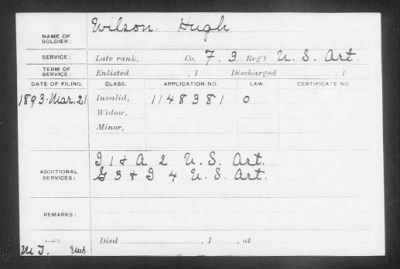 Wilson Hugh
NAME OF SOLDIER:
SERVICE: Late rank, Co. F. 3 Reg't U. S. Art.
TERM OF SERVICE: Enlisted , 1 Discharged , 1
DATE OF FILING. CLASS. APPLICATION NO. LAW. CERTIFICATE NO.
1893-Mar.21 Invalid, 1148381 O
Widow,
Minor,
I 1 & A 2 U. S. Art.
ADDITIONAL SERVICES: G 3 & I 4 U. S. Art.
REMARKS:
Died , 1 , at